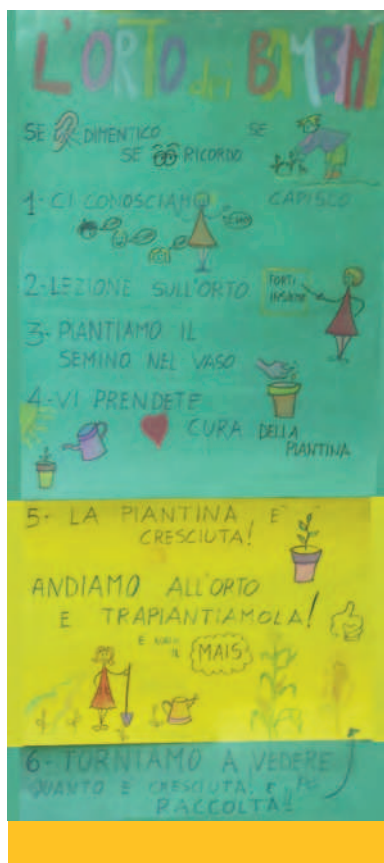 L'ORTO dei BAMBINI
SE DIMENTICO
SE RICORDO
SE
CAPISCO
1- CI CONOSCIAMO
CIAO
2- LEZIONE SULL'ORTO
TORTI
INSIEME
3- PIANTIAMO IL
SEMINO NEL VASO
4- VI PRENDETE
CURA DELLA
PIANTINA
5- LA PIANTINA E'
CRESCIUTA!
ANDIAMO ALL'ORTO
E TRAPIANTIAMOLA!
E
IL MAIS
6- TORNIAMO A VEDERE
QUANTO E' CRESCIUTA! E POI
RACCOLTA!!